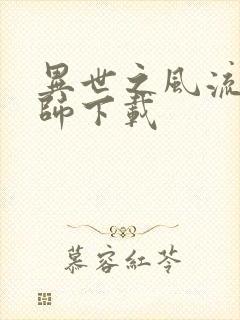 異世之風流
師下載
慕容紅苓